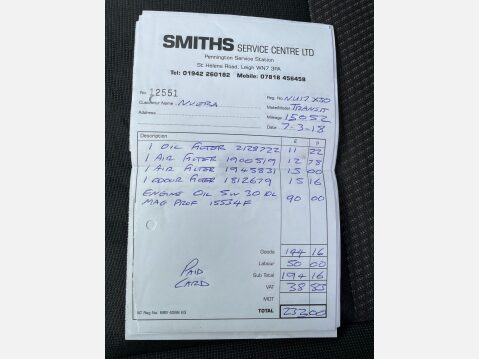 SMITHS SERVICE CENTRE LTD
Pennington Service Station
St Helens Road, Leigh WN7 3PA
Tel: 01942 260182 Mobile: 07818 456458
No. 12551
Reg. No. NU17 XSO
Customer Name NUERA
Make/Model TRANSIT
Address
Mileage 15052
Date 7-3-18
Description £ p
1 OIL FILTER 2128722 11 22
1 AIR FILTER 1900519 12 78
1 AIR FILTER 1945831 15 00
1 ODOUR FILTER 1812679 15 16
ENGINE OIL 5W30 10L 90 00
MAG PROF 15534F
Goods 144 16
PAID Labour 50 00
CARD Sub Total 194 16
VAT 38 83
MOT
TOTAL 232.00